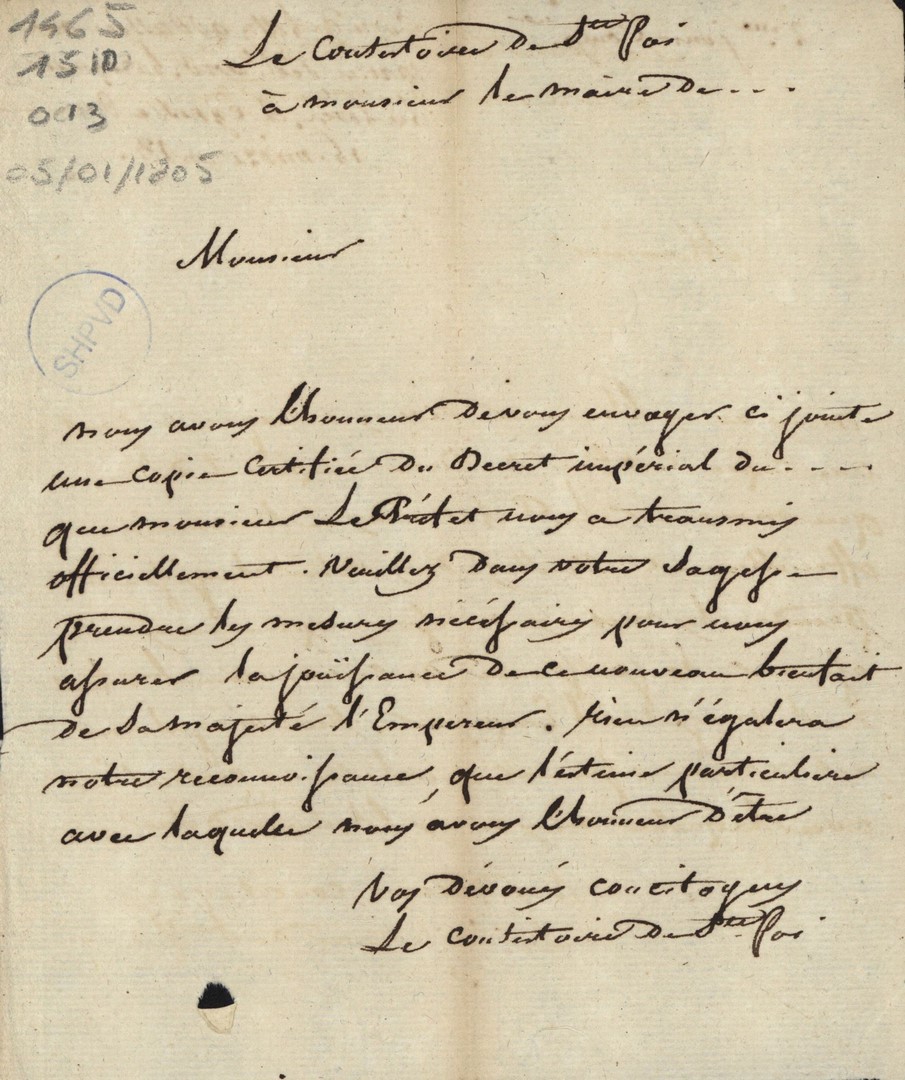 1465
15 ID
013
05/01/1805
Le Consistoire De Ste Foi
à monsieur le maire De - - -
Monsieur
SHPVD
nous avons l'honneur De vous envoyer ci jointe
une copie Certifiée Du Decret impérial du - - - -
que monsieur Le Préfet nous a transmis
officiellement. Veuillez Dans votre Sagesse
prendre les mesures nécéssaires pour nous
assurer la jouïssance De ce nouveau bienfait
De Sa majesté l'Empereur. rien n'égalera
notre reconnoissance, que l'éstime particuliere
avec laquelle nous avons l'honneur D'être
Vos Dévoués concitoyens
Le Consistoire De Ste Foi